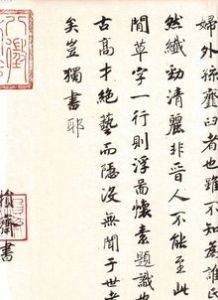 婦外孫齏臼者也雖不知為誰氏
然纖勁清麗非晉人不能至此
間草字一行則浮圖懷素題識也
古高才絕藝而隱没無聞于世者
矣豈獨書耶
損齋書